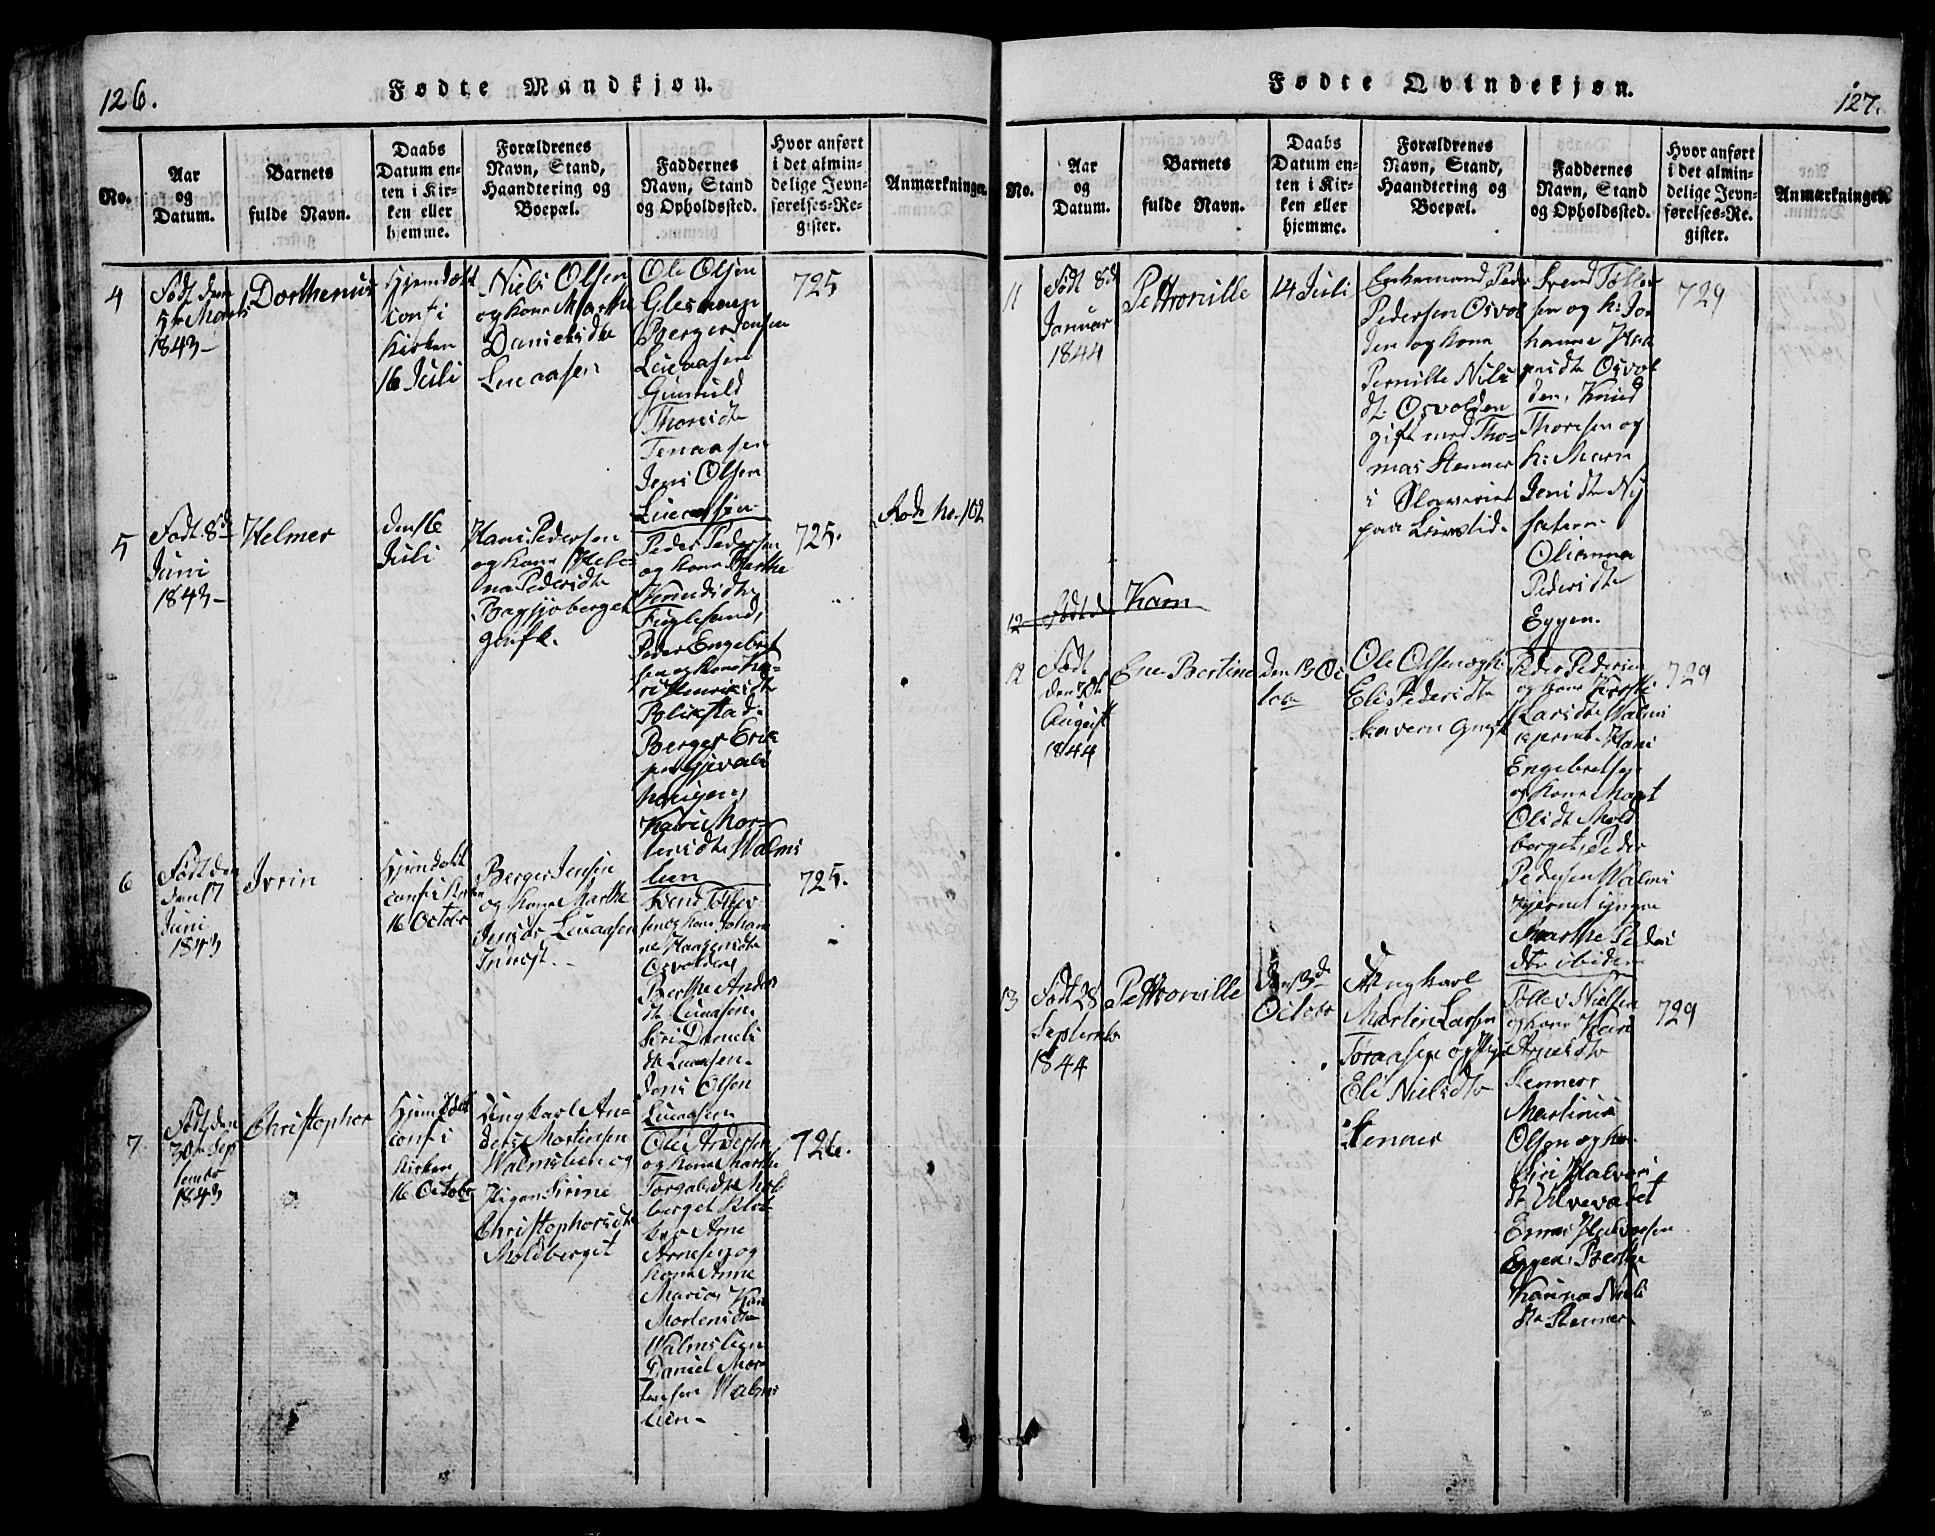 126.
Fødte Mandkjøn.
No.
Aar
og
Datum.
Barnets
fulde Navn.
Daabs
Datum en-
ten i Kir-
ken eller
hjemme.
Forældrenes
Navn, Stand,
Haandtering og
Boepæl.
Faddernes
Navn, Stand
og Opholdssted.
Hvor anført
i det almin-
delige Jevn-
førelses-Re-
gister.
Anmærkninger.
4
Født den
5te Marts
1843
Dorthenius
Hjemdøbt
conf i
Kirken
16 Juli
Niels Olsen
og kone Marthe
Danielsdtr
Lucaasen
Ole Olsen
Bergerjensen
Lucaasen
Gunnild
Thorsidtr
Jens Olsen
Lucaasen
725
5
Født 8de
Juni
1843
Helmer
den 16
Juli
Hans Pedersen
og kone Hele-
na Pedersdtr
Peder Pedersen
og kone Marthe
Knudsdtr
Fuglesand,
Peder Engebret
sen og kone Ka-
ri Henriksdtr
Blikstad.
Berger Erik
Kari Mor-
tensdtr Walms
lien
725.
Rode no. 102
6
Født den
den 17
Juni
1843
Iverin
Hjemdøbt
conf i Kirken
16 October
Berger Jensen
og kone Marthe
Jensdr Lucaasen
Svend Tollev
sen og kone Johan
ne Haagensdtr
Osvolden,
Berthe Anders
dt. Lucaasen.
Siri Daniels
dt Lucaasen.
Jens Olsen
Lucaasen
725.
7.
Født den
30te Sep
tembr
1843
Christopher
Hjemdøbt
conf i
Kirken
16 October
Ungkarl An-
ders Mortensen
Walmslien og
Pigen Sirine
Christophersdtr
Moldberget
Ole Andersen
og kone Marthe
berget
Arne
Arnesen og
kone Anne
Maria Kari
Mortensdtr
Walmslien
Daniel Mor
tensen Walms
lien.
726.
Fødte Qvindekjøn.
127.
No.
Aar
og
Datum.
Barnets
fulde Navn.
Daabs
Datum en-
ten i Kir-
ken eller
hjemme.
Forældrenes
Navn, Stand,
Haandtering og
Boepæl.
Faddernes
Navn, Stand
og Opholdssted.
Hvor anført
i det almin-
delige Jevn-
førelses-Re-
gister.
Anmærkninger.
11
Født 8de
Januar
1844
Pettronille
14 Juli
Enkemand Peder
Pedersen Osvol
den og kone
Pernille Niels
dt. Osvolden
gift med Tho-
mas Stenner
i
paa
Svend Tollev
sen og k: Jo
hanne Haa
gensdtr Osvol
den, Knud
Thoresen og
k: Marn
Jensdtr Ny
sætern
Olianna
Pedersdtr
Eggen.
729
12
Født d
Karn
12
Født
den 7de
August
1844
Ene Bertine
den 13 Oc
tober
Ole Olsen og k:
Eli Pedersdtr
Peder Pedersen
og kone Kirsti
Larsdtr Walms
kjernet. Hans
Engebretsen
og kone Marit
Olsdt Mold
berget, Peder
Pedersen Walms
kjernet yngre
Marthe Peders
dtr ibidem
729
13
Født 28
September
1844
Pettronille
Den 13de
October
Ungkarl
Martin Larsen
Toraasen og Pige
Eli Nielsdtr
Stenner
Tollev Nielsen
og kone Kari
Arnesdtr
Stenner
Martinus
Olsen og kone
Siri Halvors
dt. Ulvevaret
Halvorsen
Eggen, Berthe
Karina Niels
dtr Stenner
729